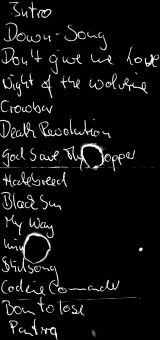 Intro
Down-Song
Don't give me love
Night of the wolverine
Crowbar
Death Revolution
God Save The opper
Hatebreed
Black Sun
My Way
Shitsong
Cookie Commander
Born to lose
Pantera